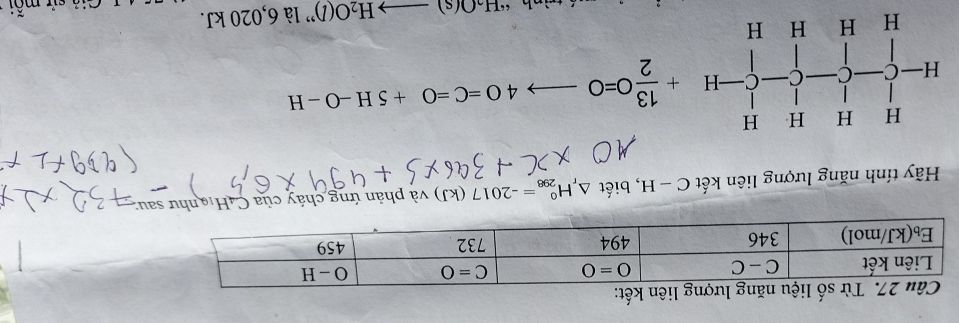 Câu 27. Từ số liệu năng lượng liên kết:
Liên kết C – C O = O C = O O – H
E_b(kJ/mol) 346 494 732 459
Hãy tính năng lượng liên kết C – H, biết Δ_rH⁰₂₉₈ = -2017 (kJ) và phản ứng cháy của C₄H₁₀ như sau:
10 × x + 346×3 + 494 × 6,5 ) – 732 ×
H H H H
H–C–C–C–C–H + 13/2 O=O ⟶ 4 O=C=O + 5 H–O–H
H H H H
“H₂O(s) ⟶ H₂O(l)” là 6,020 kJ.